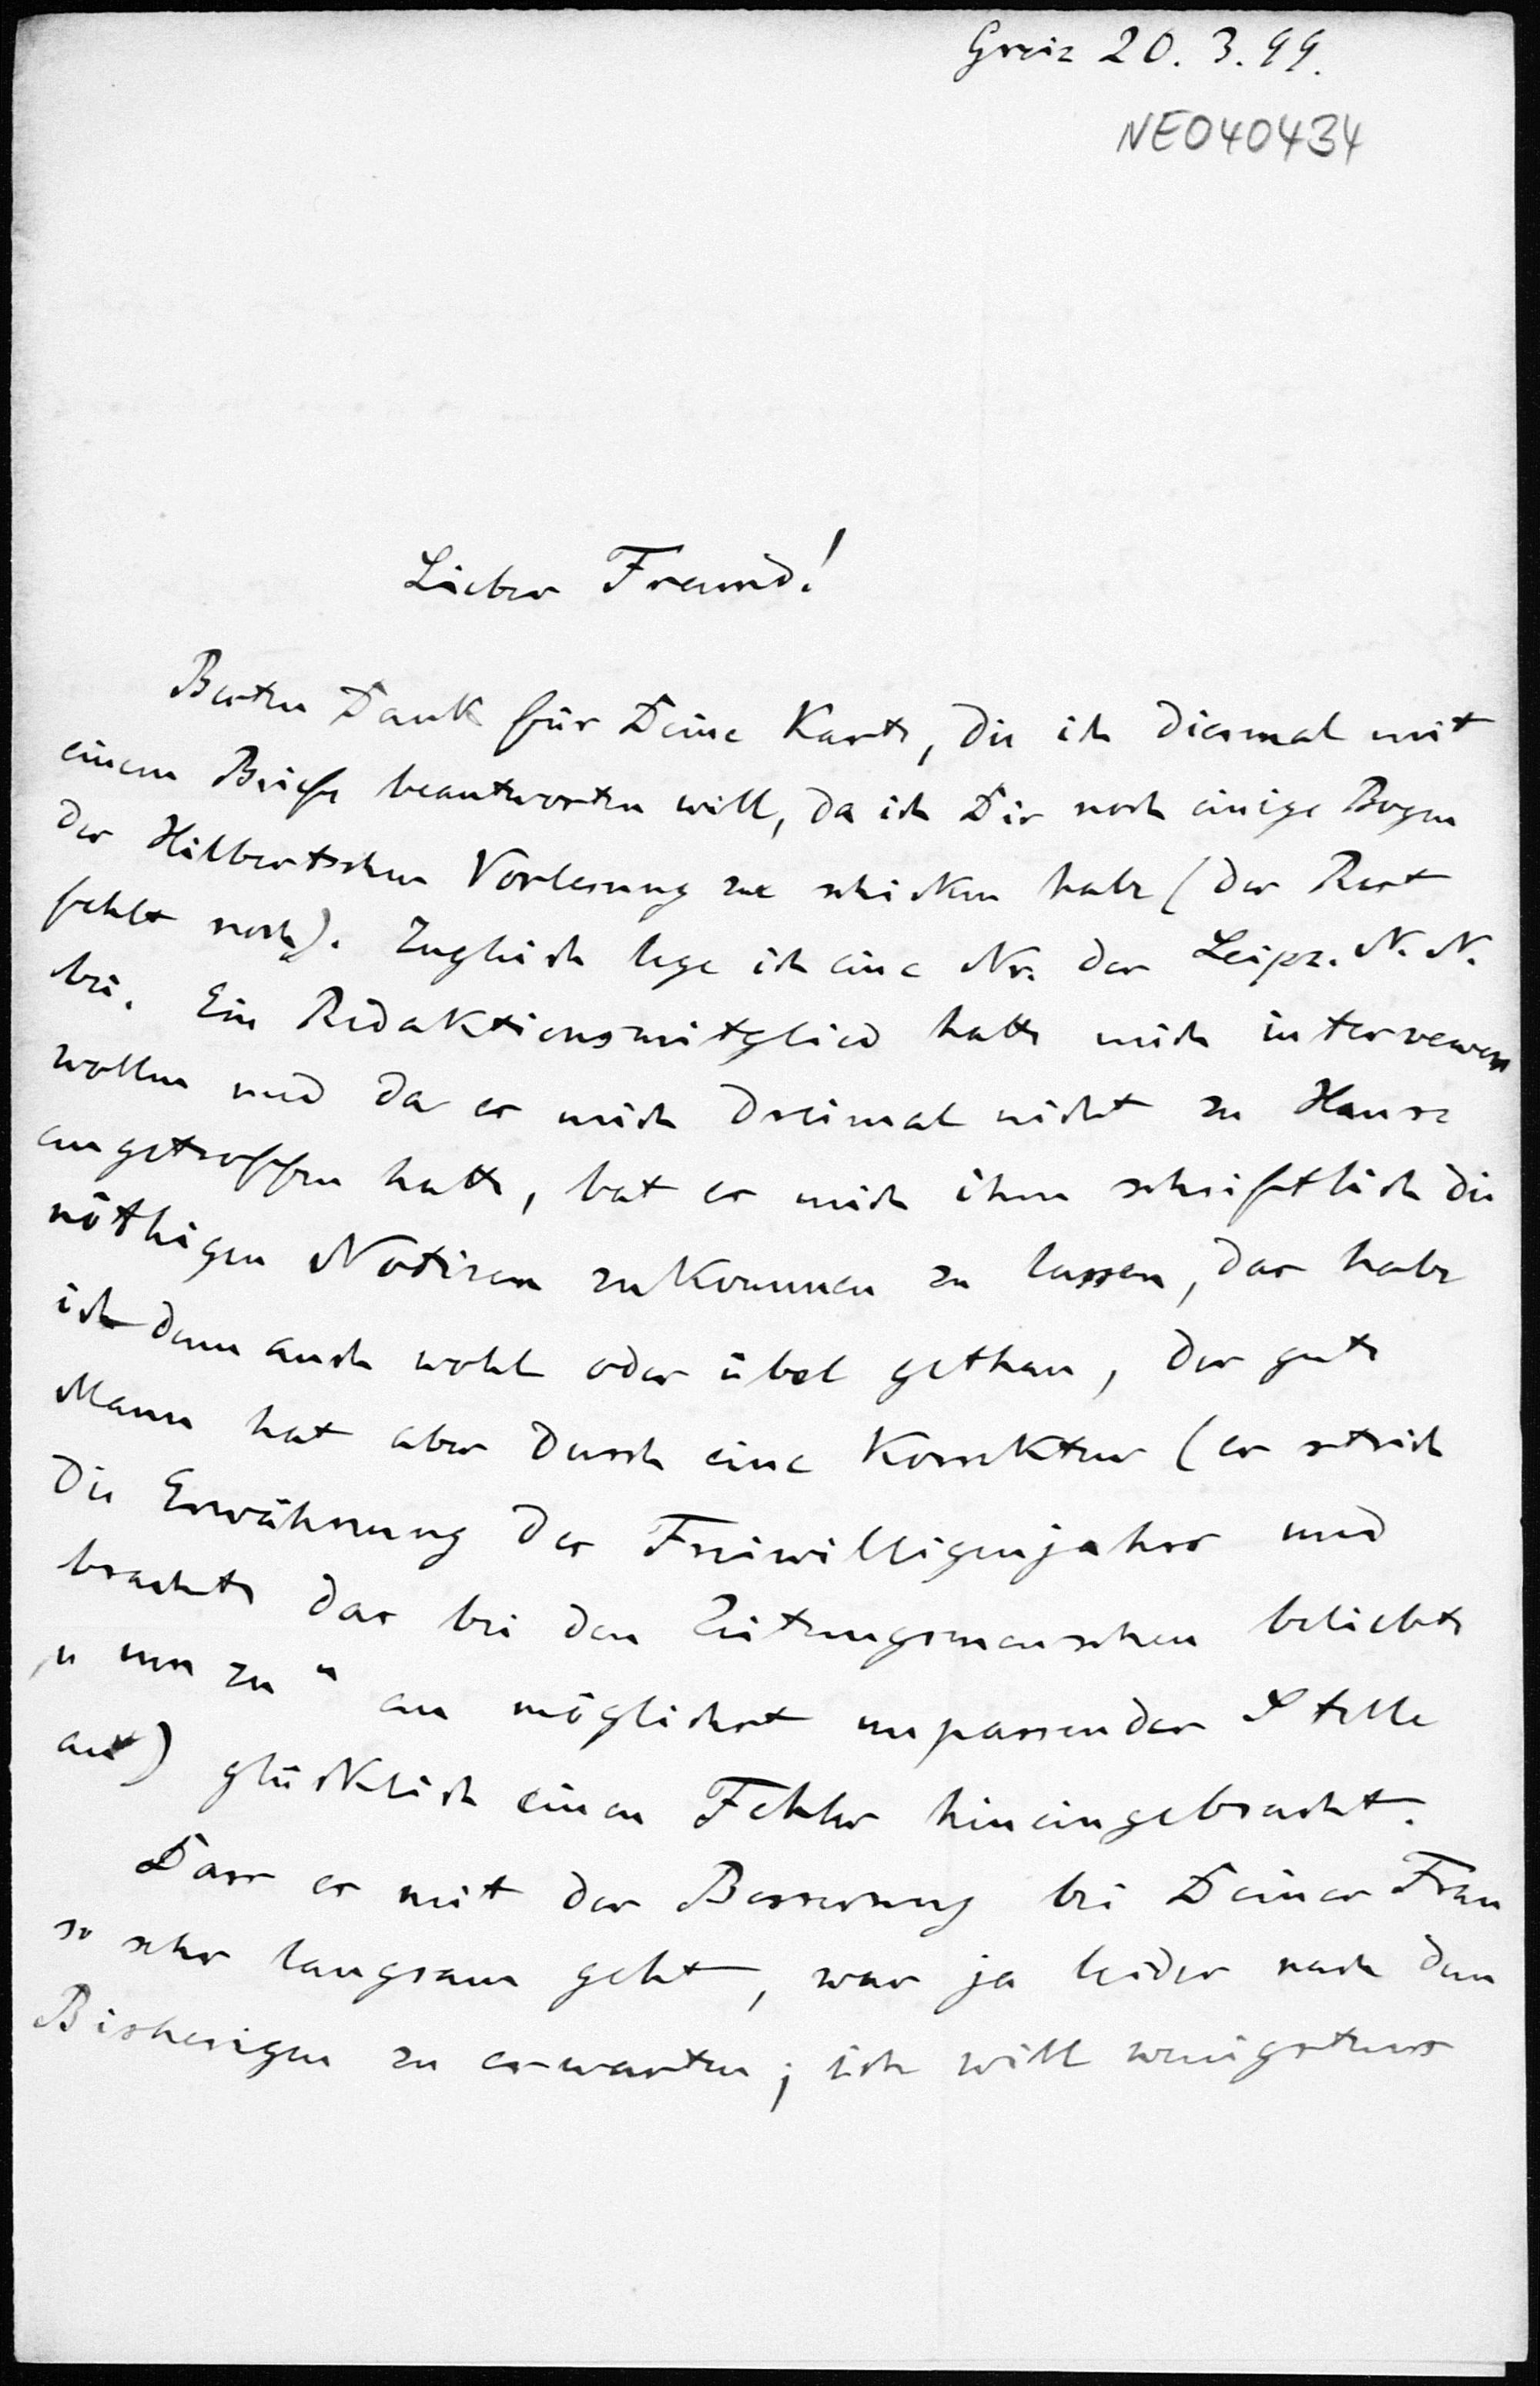 Greiz 20. 3. 99.
NE040434
Lieber Freund!
Besten Dank für Deine Karte, die ich diesmal mit
einem Briefe beantworten will, da ich Dir noch einige Bogen
der Hilbertschen Vorlesung zu schicken habe (der Rest
fehlt noch). Zugleich lege ich eine Nr. der Leipz. N. N.
bei. Ein Redaktionsmitglied hatte mich interviewen
wollen und da er mich dreimal nicht zu Hause
angetroffen hatte, bat er mich ihm schriftlich die
nöthigen Notizen zukommen zu lassen, das habe
ich denn auch wohl oder übel gethan, der gute
Mann hat aber durch eine Korrektur (er strich
die Erwähnung des Freiwilligenjahres und
brachte das bei den Zeitungsmenschen beliebte
„um zu“ an möglichst unpassender Stelle
an) glücklich einen Fehler hineingebracht.
Dass es mit der Besserung bei Deiner Frau
so sehr langsam geht, war ja leider nach dem
Bisherigen zu erwarten; ich will wenigstens